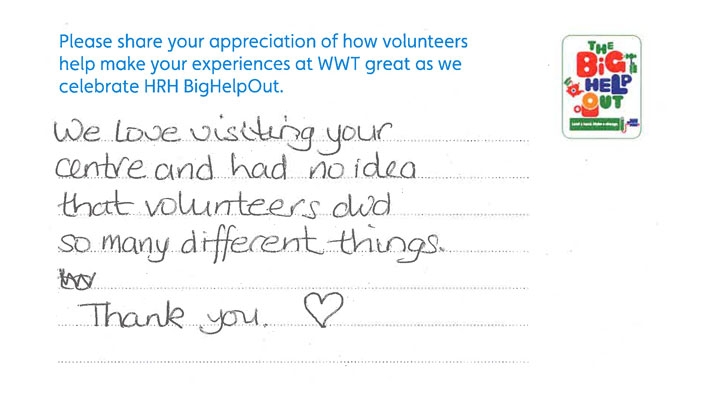 Please share your appreciation of how volunteers
help make your experiences at WWT great as we
celebrate HRH BigHelpOut.
THE
BIG
HELP
OUT
We Love visiting your
centre and had no idea
that volunteers did
so many different things.
Thank you. ♡